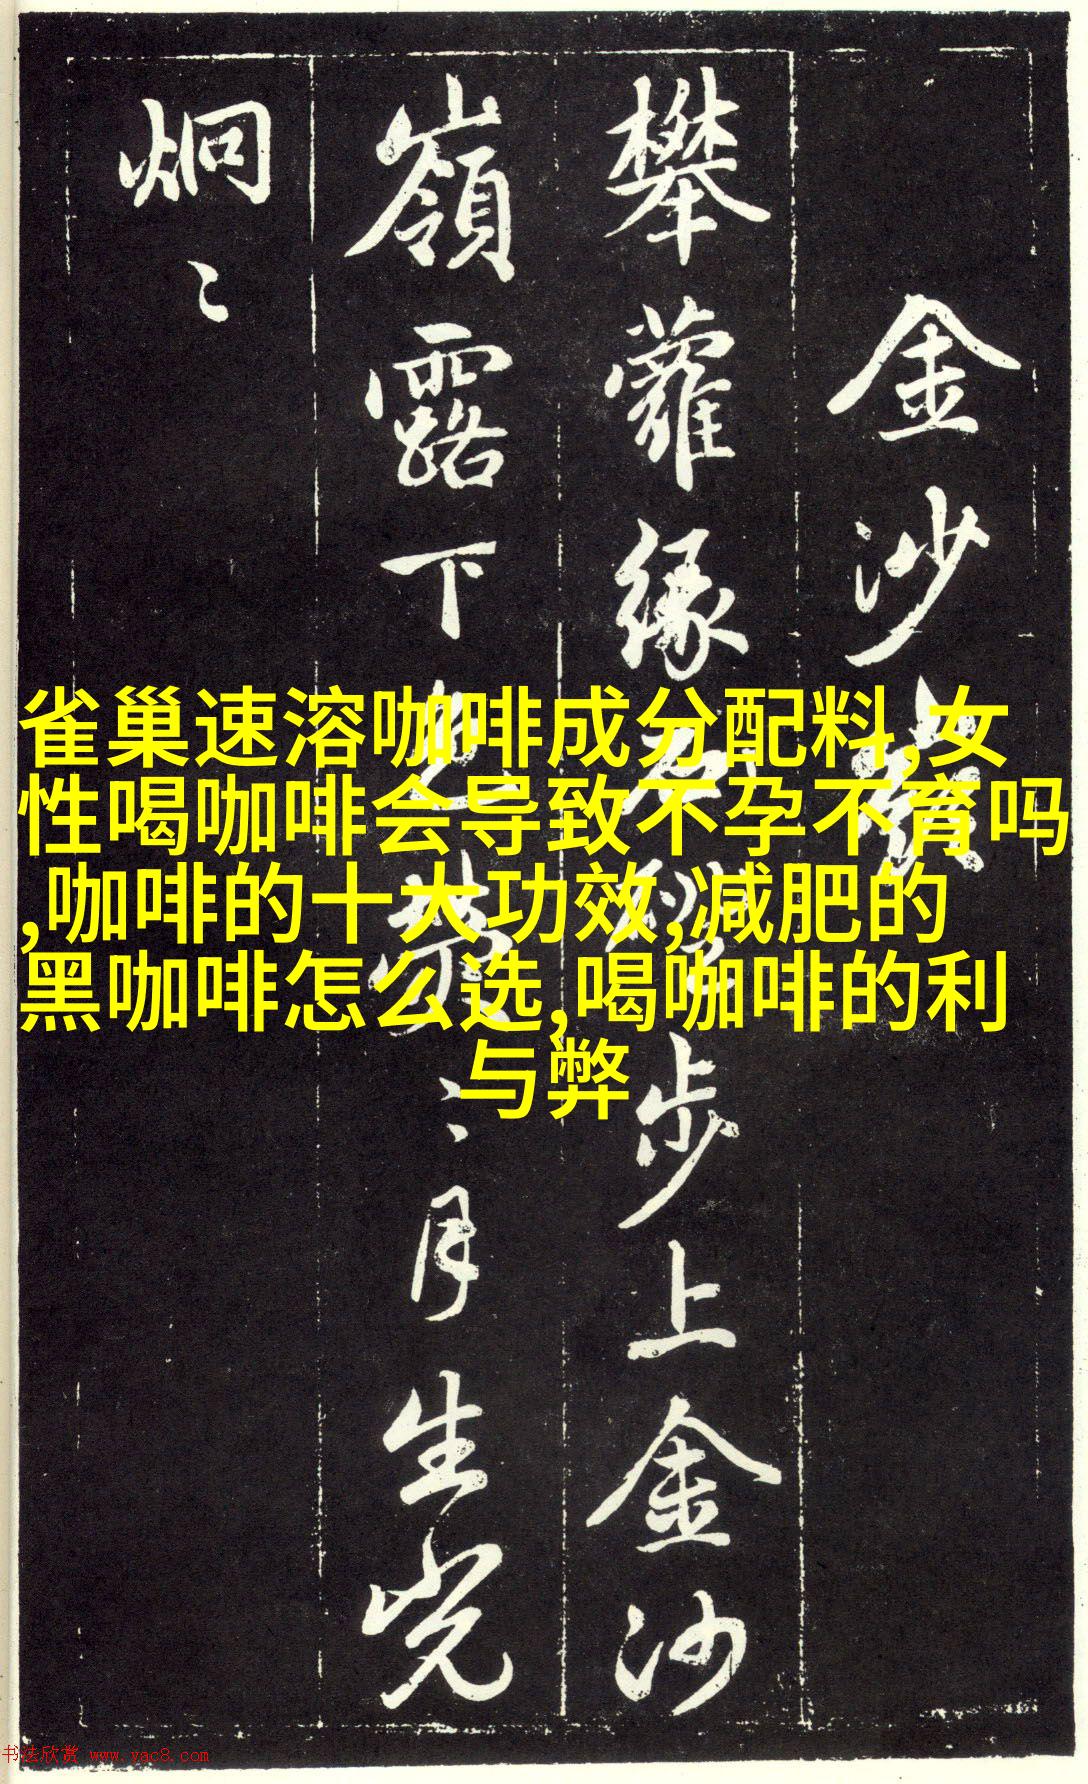 金沙
攀蘿緣步上金沙
嶺露下〻月生光
炯〻
雀巢速溶咖啡成分配料,女
性喝咖啡会导致不孕不育吗
,咖啡的十大功效,减肥的
黑咖啡怎么选,喝咖啡的利
与弊
书法欣赏 www.yac8.com